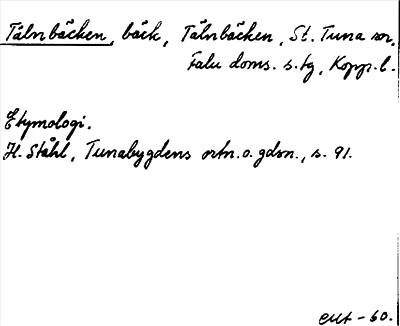 Tälnbäcken, bäck, Tälnbäcken, St. Tuna sn,
Falu doms. s. tg, Kopp. l.
Etymologi.
H. Ståhl, Tunabygdens ortn. o. gdsn., s. 91.
EUt - 60.